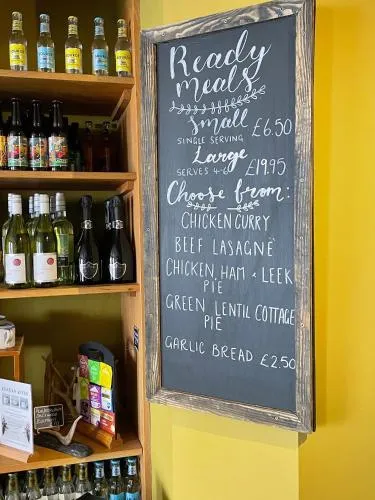 Ready
meals
Small £6.50
SINGLE SERVING
Large £19.95
SERVES 4-6
Choose from:
CHICKEN CURRY
BEEF LASAGNÈ
CHICKEN, HAM + LEEK
PIE
GREEN LENTIL COTTAGE
PIE
GARLIC BREAD £2.50